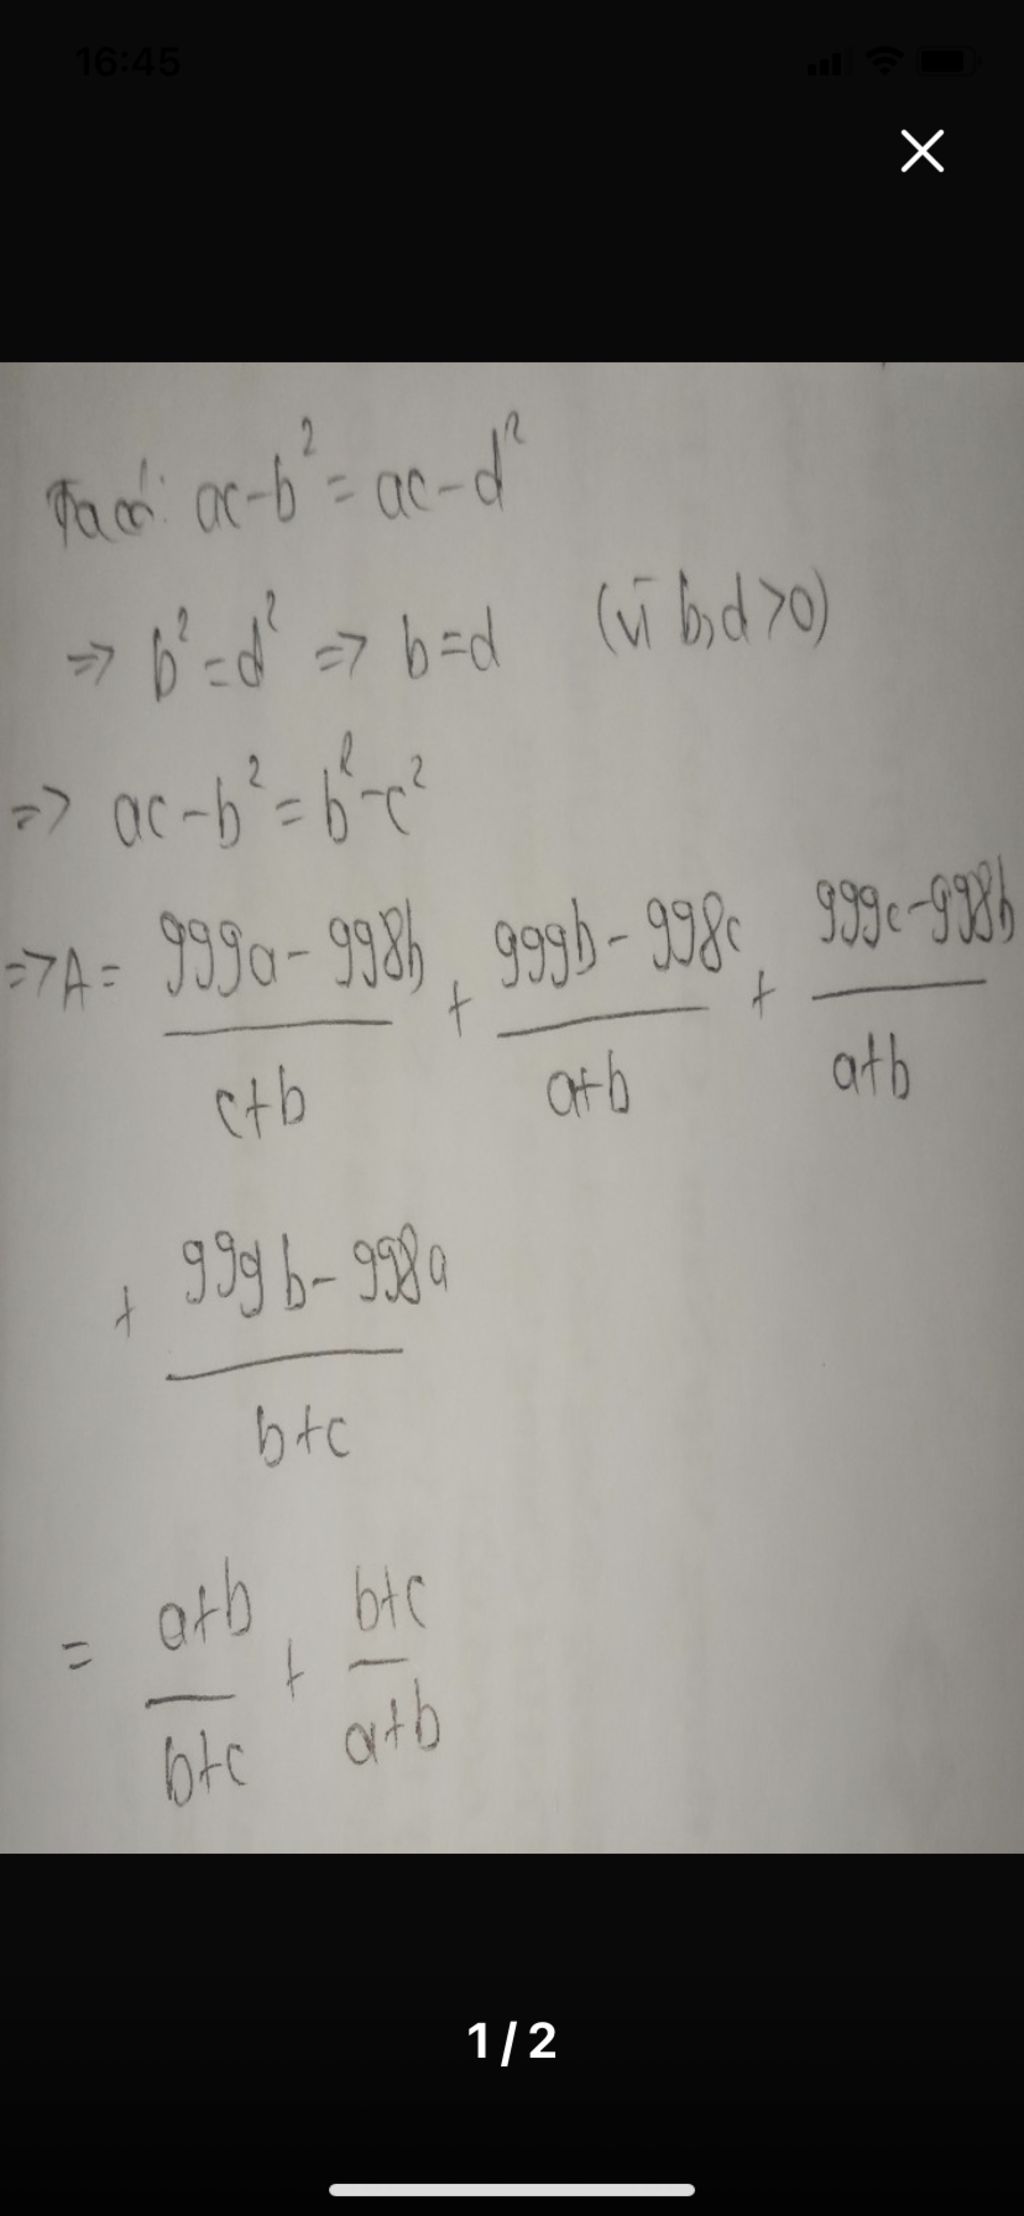 16:45
Ta có: ac-b² = ac-d²
=> b² = d² => b = d (vì b,d >0)
=> ac-b² = b²-c²
=> A = (999a - 998b)/(c+b) + (999b - 998c)/(a+b) + (999c - 998b)/(a+b)
+ (999b - 998a)/(b+c)
= (a+b)/(b+c) + (b+c)/(a+b)
1/2